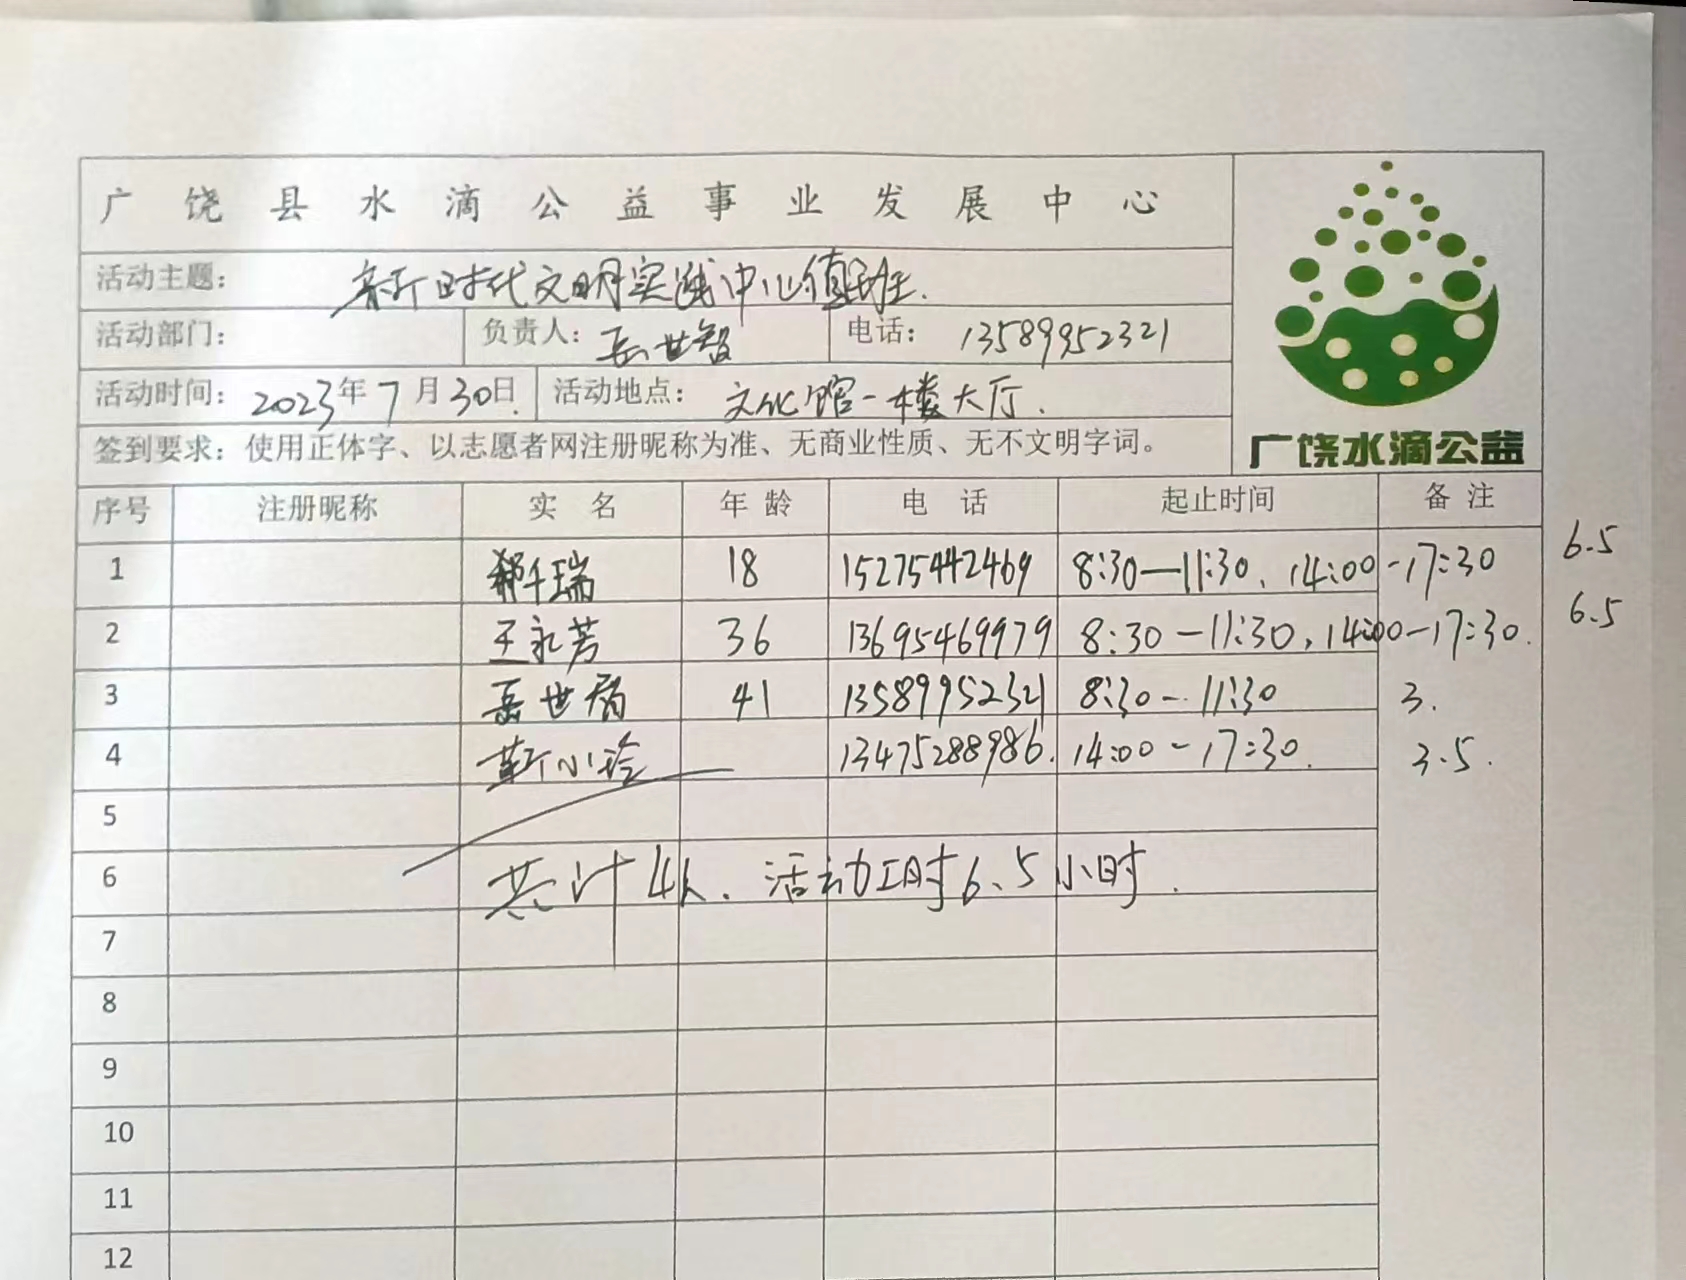 广饶县水滴公益事业发展中心
活动主题: 新时代文明实践中心值班.
活动部门: 负责人: 岳世智 电话: 13589952321
活动时间: 2023年7月30日. 活动地点: 文化馆一楼大厅.
签到要求: 使用正体字、以志愿者网注册昵称为准、无商业性质、无不文明字词。
广饶水滴公益
序号 注册昵称 实名 年龄 电话 起止时间 备注
1 千瑞 18 15275442469 8:30—11:30、14:00-17:30 6.5
2 王永芳 36 13695469979 8:30-11:30,14:00-17:30. 6.5
3 岳世 41 13589952321 8:30-11:30 3.
4 靳小玲 13475288986. 14:00-17:30. 3.5.
5
6 共计4人.活动工时6.5小时.
7
8
9
10
11
12